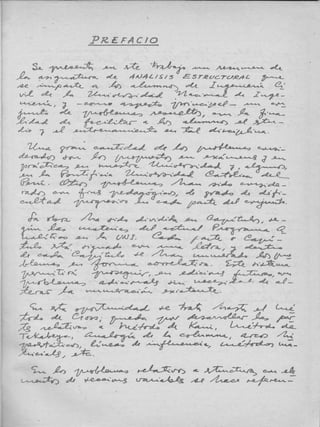 PREFACIO
Se presenta en este trabajo un resumen de
la asignatura de ANALISIS ESTRUCTURAL que
se imparte a los alumnos de Ingeniería Ci
vil de la Universidad Nacional de Inge-
niería, y -como aspecto principal- un con
junto de problemas resueltos, con la fina
lidad de facilitar a los alumnos el estu-
dio y el entrenamiento en tal disciplina.
Una gran cantidad de los problemas consi-
derados son los propuestos en exámenes y en
prácticas en nuestra Universidad y algunos
en la Pontificia Universidad Católica del
Perú. Otros problemas han sido conside-
rados con fines pedagógicos, de grado de difi-
cultad progresivo en cada parte del conjunto.
La obra ha sido dividida en Capítulos, se-
gún las materias del actual Programa A
nalítico en la UNI. Cada parte o Capí-
tulo está signado con una letra, y dentro
de cada Capítulo se han numerado los pro
blemas en forma correlativa. Este sistema
permitirá proseguir, en ediciones futuras, con
problemas adicionales sin necesidad de al-
terar la numeración existente.
En esta oportunidad se trata hasta el Mé
todo de Cross, queda por desarrollar las par
tes relativas a Método de Kani, Método de
Takabeya, analogía de la columna, arcos hi
perestáticos, líneas de influencia, métodos ma-
triciales, etc.
En los problemas relativos a estructuras con ele
mentos de sección variable se hace referen-